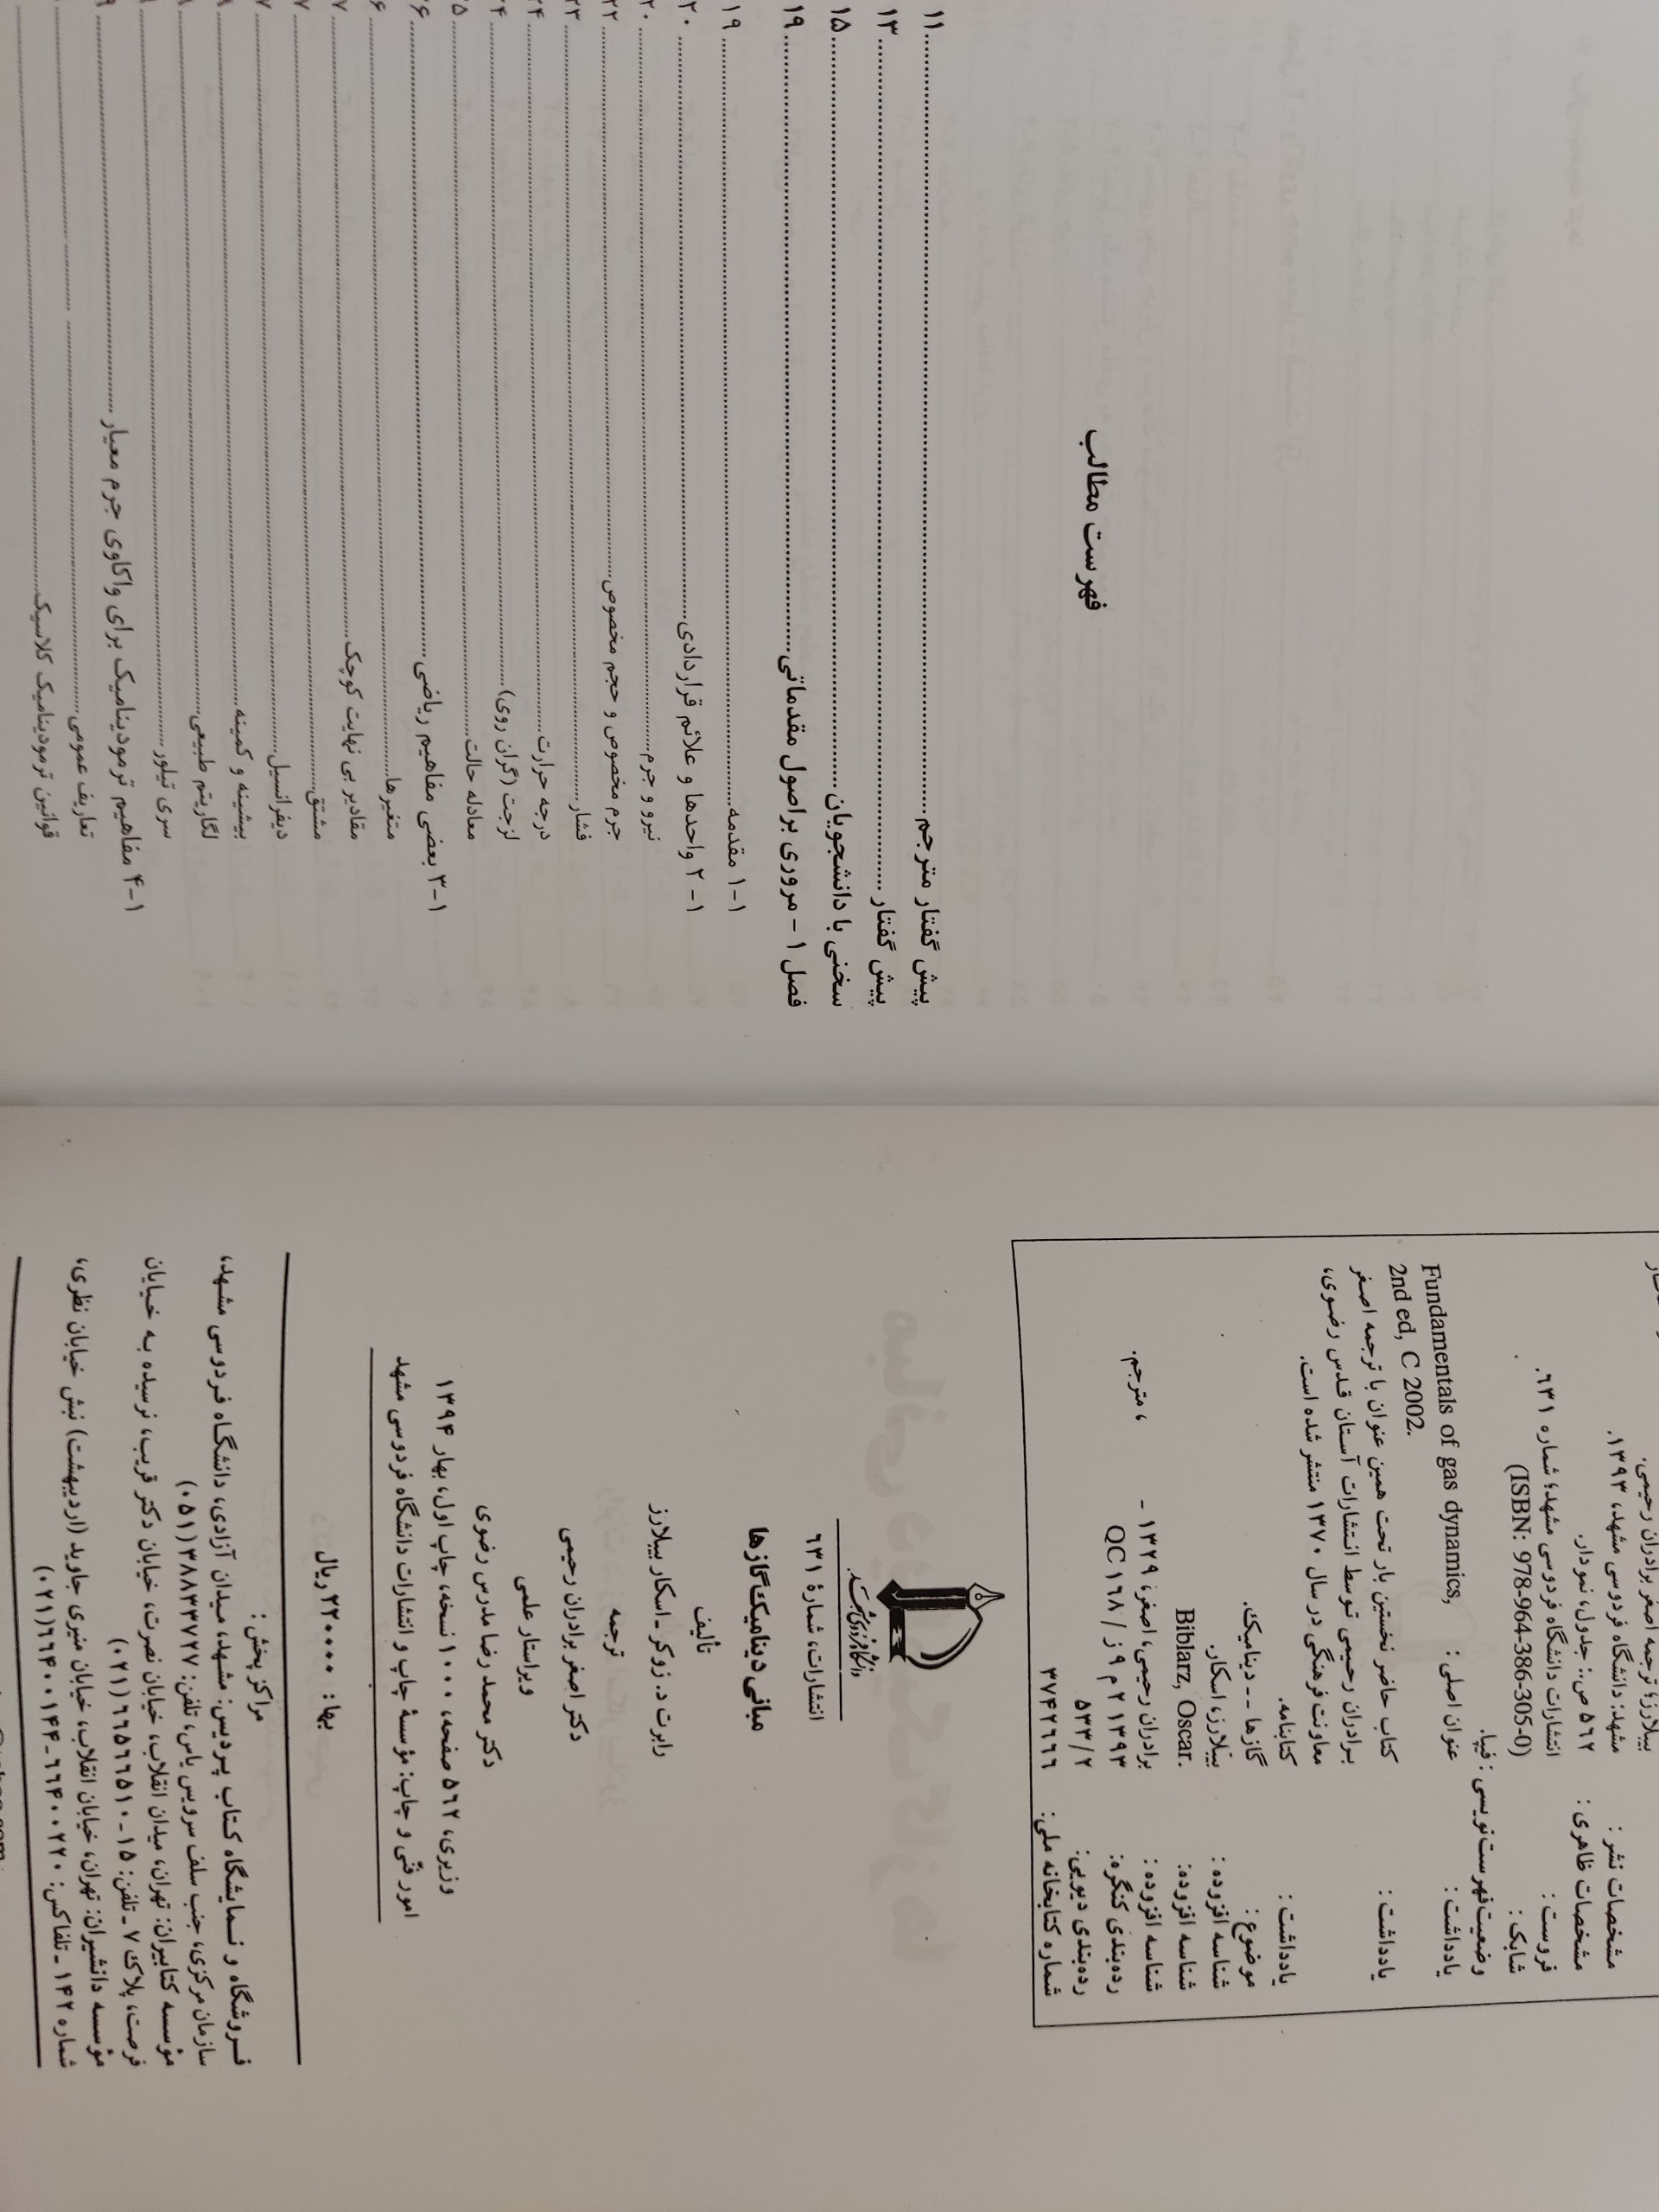 بیلارز؛ ترجمه اصغر برادران رحیمی.
مشخصات نشر : مشهد: دانشگاه فردوسی مشهد، ۱۳۹۳.
مشخصات ظاهری : ۵۶۲ ص.: جدول، نمودار.
فروست : انتشارات دانشگاه فردوسی مشهد؛ شماره ۶۳۱.
شابک : (ISBN: 978-964-386-305-0)
وضعیت فهرست‌نویسی : فیپا.
یادداشت : عنوان اصلی : Fundamentals of gas dynamics,
2nd ed, C 2002.
یادداشت : کتاب حاضر نخستین بار تحت همین عنوان با ترجمه اصغر
برادران رحیمی توسط انتشارات آستان قدس رضوی،
معاونت فرهنگی در سال ۱۳۷۰ منتشر شده است.
یادداشت : کتابنامه.
موضوع : گازها -- دینامیک.
شناسه افزوده : بیلارز، اسکار.
شناسه افزوده: Biblarz, Oscar.
شناسه افزوده : برادران رحیمی، اصغر، ۱۳۲۹ - ، مترجم.
رده‌بندی کنگره: ۱۳۹۳ ۲ م ۹ ز / QC ۱۶۸
رده‌بندی دیویی: ۵۳۳/۲
شماره کتابخانه ملی: ۳۷۴۲۶۶۶
دانشگاه فردوسی مشهد
انتشارات، شمارهٔ ۶۳۱
مبانی دینامیک گازها
تألیف
رابرت د. زوکر ـ اسکار بیلارز
ترجمه
دکتر اصغر برادران رحیمی
ویراستار علمی
دکتر محمد رضا مدرس رضوی
وزیری، ۵۶۲ صفحه، ۱۰۰۰ نسخه، چاپ اول، بهار ۱۳۹۴
امور فنّی و چاپ: مؤسسهٔ چاپ و انتشارات دانشگاه فردوسی مشهد
بها: ۲۲۰۰۰۰ ریال
مراکز پخش :
فروشگاه و نمایشگاه کتاب پردیس: مشهد، میدان آزادی، دانشگاه فردوسی مشهد،
سازمان مرکزی، جنب سلف سرویس یاس، تلفن: ۳۸۸۳۳۷۲۷ (۰۵۱)
مؤسسه کتابیران: تهران، میدان انقلاب، خیابان نصرت، خیابان دکتر قریب، نرسیده به خیابان
فرصت، پلاک ۷ ـ تلفن: ۱۵-۶۶۵۶۶۵۱۰ (۰۲۱)
مؤسسه دانشیران: تهران، خیابان انقلاب، خیابان منیری جاوید (اردیبهشت) نبش خیابان نظری،
شماره ۱۴۲ ـ تلفاکس: ۶۶۴۰۰۲۲۰-۶۶۴۰۰۱۴۴ (۰۲۱)
فهرست مطالب
پیش گفتار مترجم ۱۱
پیش گفتار ۱۳
سخنی با دانشجویان ۱۵
فصل ۱ - مروری بر اصول مقدماتی ۱۹
۱-۱ مقدمه ۱۹
۱-۲ واحدها و علائم قراردادی ۲۰
نیرو و جرم ۲۰
جرم مخصوص و حجم مخصوص ۲۲
فشار ۲۳
درجه حرارت ۲۴
لزجت (گران روی) ۲۴
معادله حالت
۱-۳ بعضی مفاهیم ریاضی
متغیرها
مقادیر بی نهایت کوچک
مشتق
دیفرانسیل
بیشینه و کمینه
لگاریتم طبیعی
سری تیلور
۱-۴ مفاهیم ترمودینامیک برای واکاوی جرم معیار
تعاریف عمومی
قوانین ترمودینامیک کلاسیک